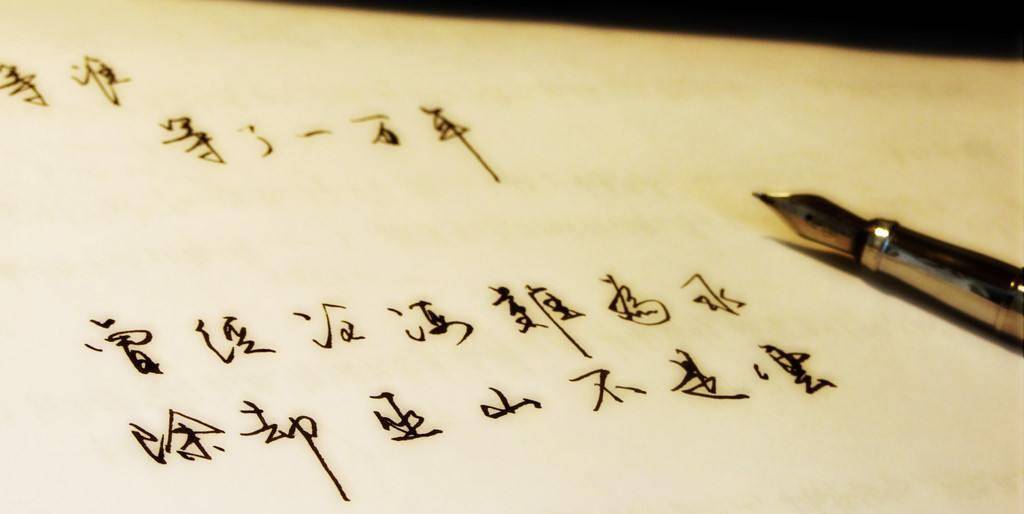 等谁
等了一百年
曾经沧海難為水
除却巫山不是雲